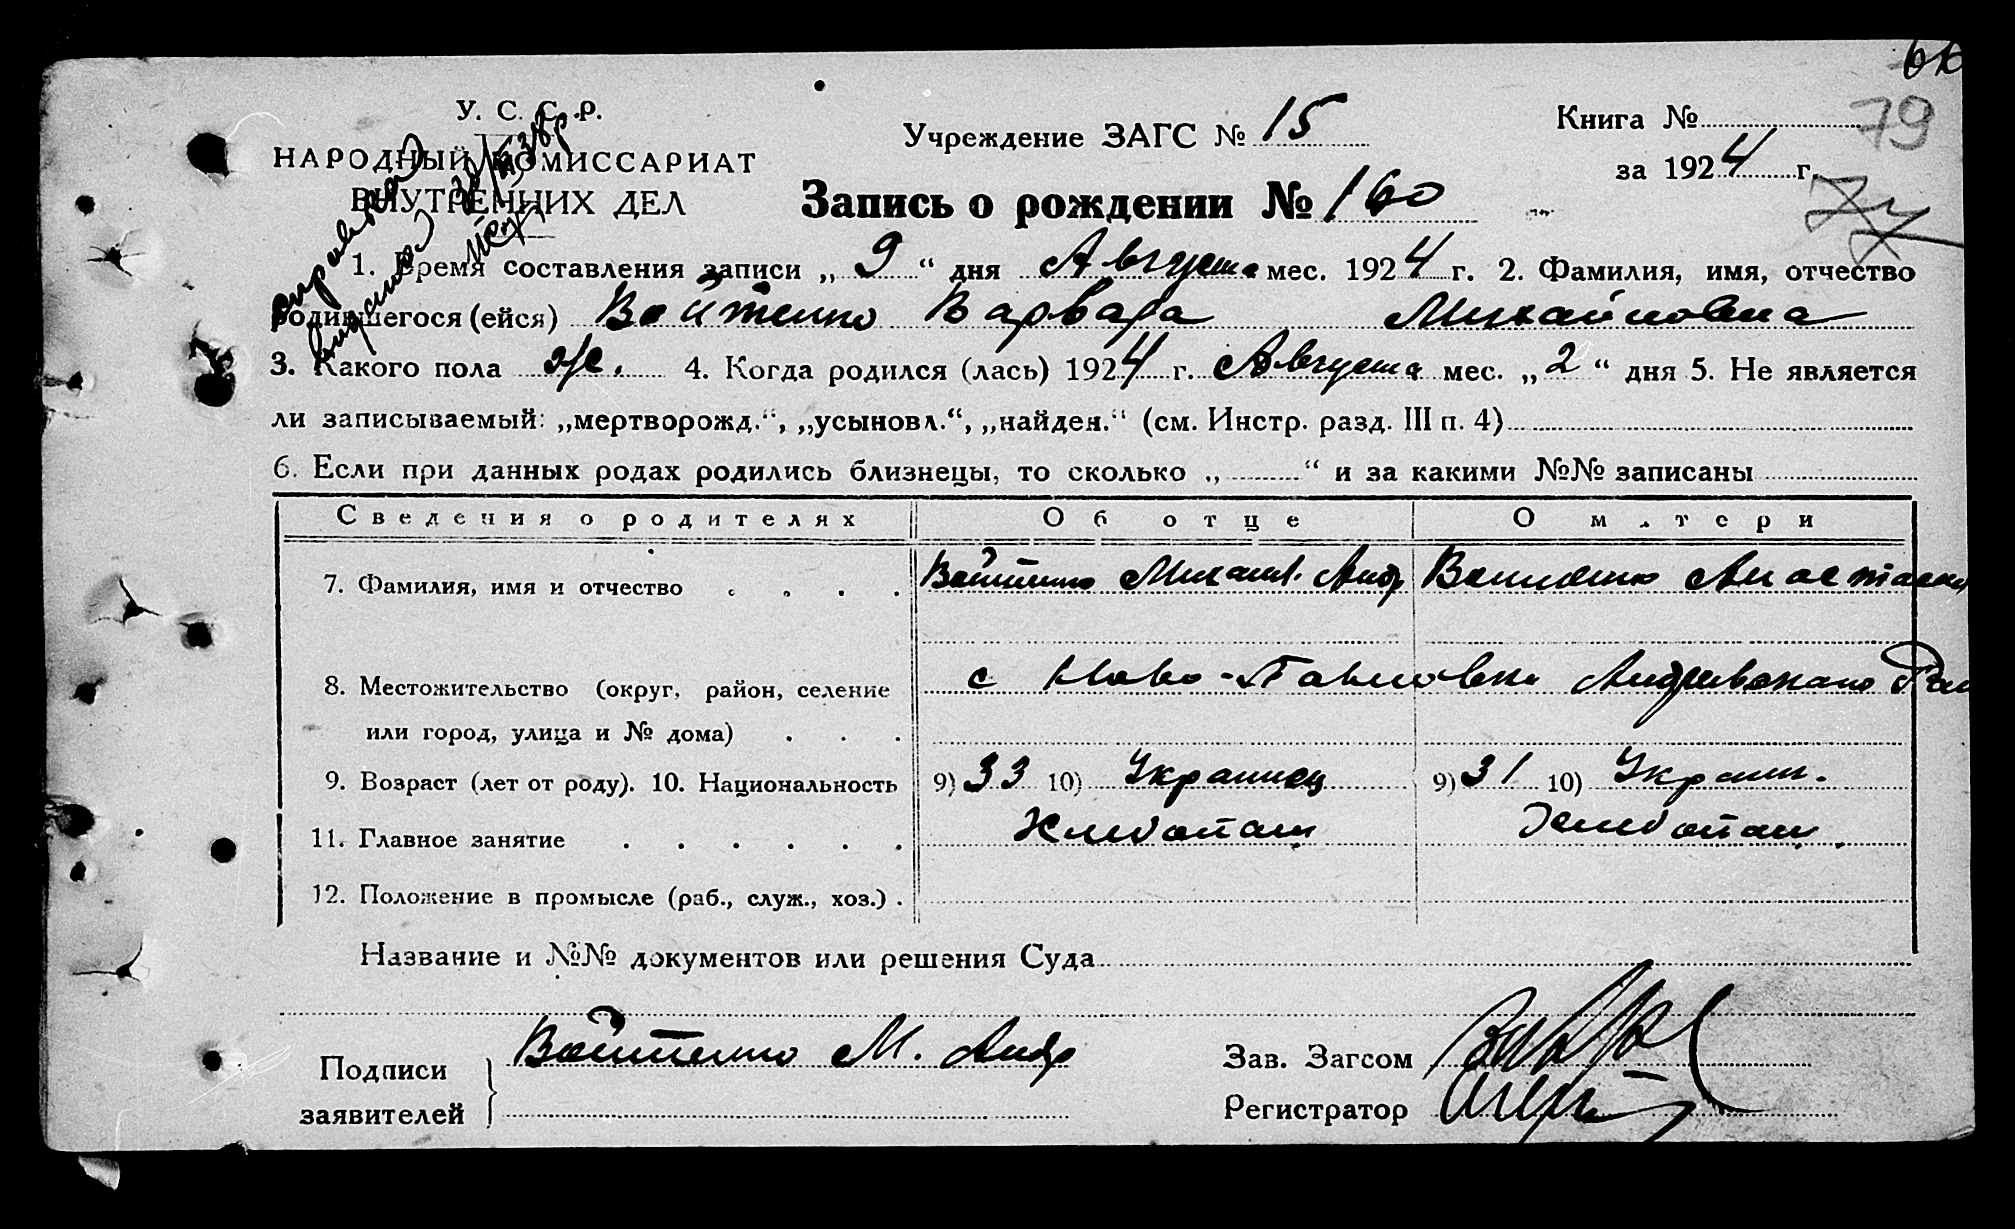 У. С. С. Р.
НАРОДНЫЙ КОМИССАРИАТ
ВНУТРЕННИХ ДЕЛ
Учреждение ЗАГС № 15
Книга №
79
за 1924 г.
Запись о рождении № 160
1. Время составления записи „ 9 “ дня Августа мес. 1924 г. 2. Фамилия, имя, отчество
родившегося (ейся) Войтенко Варвара Михайловна
3. Какого пола ж. 4. Когда родился (лась) 1924 г. Августа мес. „ 2 “ дня 5. Не является
ли записываемый: „мертворожд.“, „усыновл.“, „найден.“ (см. Инстр. разд. III п. 4)
6. Если при данных родах родились близнецы, то сколько „ “ и за какими №№ записаны
Сведения о родителях Об отце О матери
7. Фамилия, имя и отчество . . . . Войтенко Михаил. Андр Войтенко Анастасия
8. Местожительство (округ, район, селение с Ново-Павловка Андреевского Рай
или город, улица и № дома) . . .
9. Возраст (лет от роду). 10. Национальность 9) 33 10) Украинец 9) 31 10) Украин.
11. Главное занятие . . . . . . Хлебопаш Хлебопаш.
12. Положение в промысле (раб., служ., хоз.) .
Название и №№ документов или решения Суда
Подписи
заявителей
Войтенко М. Андр
Зав. Загсом
Регистратор